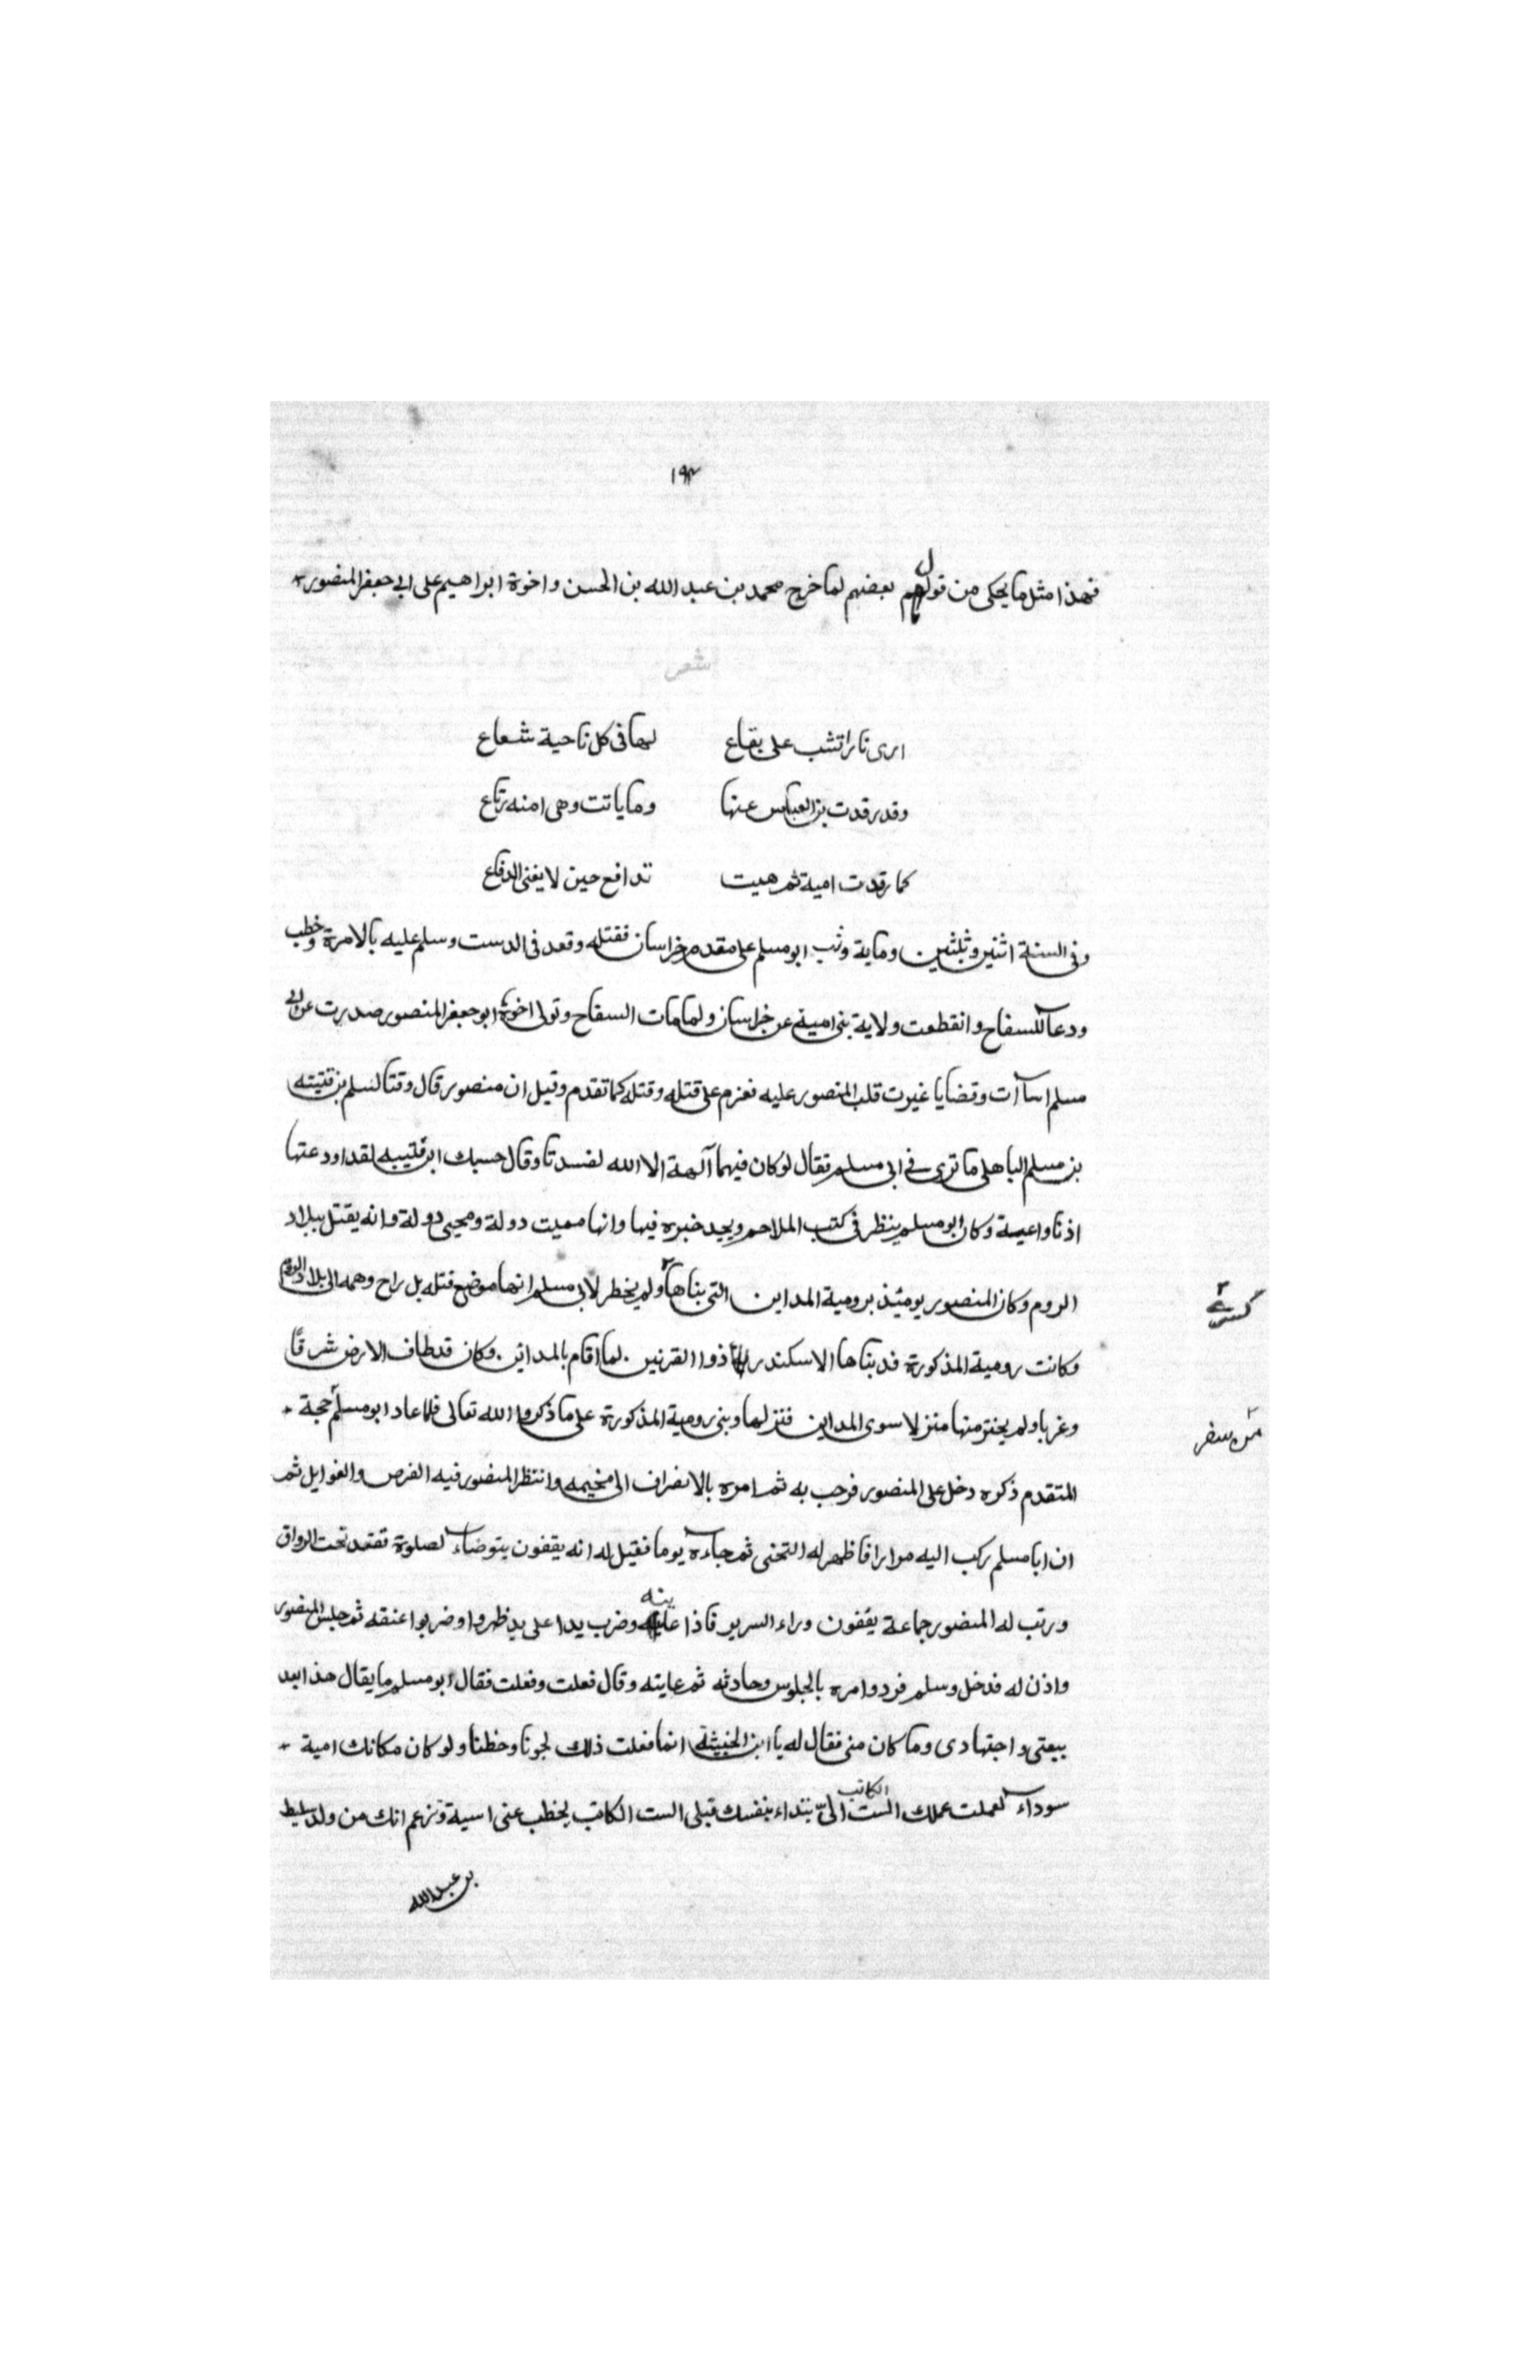 ١٩٣
فهذا مثل ما يحكى من قول بعضهم لما خرج محمد بن عبد الله بن الحسن واخوة ابراهيم على ابي جعفر المنصور
شعر
ارى نارا تشب على بقاع لها في كل ناحية شعاع
وقد رقدت بنو العباس عنها وما باتت وهي امنه رتاع
كما رقدت امية ثم هبت تدافع حين لا يغني الدفاع
وفي السنة اثنين وثلثين وماية وثب ابو مسلم على مقدم خراسان فقتله وقعد في الدست وسلم عليه بالامرة وخطب
ودعا للسفاح وانقطعت ولاية بني امية عن خراسان ولما مات السفاح وتولى اخوة ابو جعفر المنصور صدرت عن ابي
مسلم اساآت وقضايا غيرت قلب المنصور عليه فعزم على قتله وقتله كما تقدم وقيل ان منصور قال وقتا لسلم بن قتيبه
بن مسلم الباهلي ما ترى في ابي مسلم فقال لو كان فيهما آلهة الا الله لفسدتا وقال حسبك ابن قتيبه لقد اودعتها
اذنا واعية وكان ابو مسلم ينظر في كتب الملاحم ويجد خبره فيها وانها مميت دولة ومحيى دولة وانه يقتل ببلاد
الروم وكان المنصور يومئذ برومية المداين التي بناها ولم يخطر لابي مسلم انها موضع قتله بل راح وهمه الى بلاد الروم
كسرى
وكانت رومية المذكورة قد بناها الاسكندر ذوا القرنين لما اقام بالمداين وكان قد طاف الارض شرقًا
وغربا ولم يختر منها منزلا سوى المداين فنزلها وبنى رومية المذكورة على ما ذكروا الله تعالى فلما عاد ابو مسلم حجة
من سفر
المتقدم ذكره دخل على المنصور فرحب به ثم امره بالانصراف الى مخيمه وانتظر المنصور فيه الفرص والغوايل ثم
ان ابا مسلم ركب اليه مرارا فاظهر له التجنى ثم جاءه يوما فقيل له انه يقفون يتوضاء لصلوة فقعد تحت الرواق
ورتب له المنصور جماعة يقفون وراء السرير فاذا عاينه وضرب يدا على يد ظهروا وضربوا عنقه ثم جلس المنصور
واذن له فدخل وسلم فرد وامره بالجلوس وحادثه ثم عايته وقال فعلت وفعلت فقال ابو مسلم ما يقال هذا بعد
بيعتي واجتهادى وما كان منى فقال له يا ابن الخبيثة انما فعلت ذلك لجونا وحظنا ولو كان مكانك امية
سوداء لعملت عملك الست الكاتب اليّ تبتداء بنفسك قبلى الست الكاتب يخطب عنى اسية وتزعم انك من ولد سليط
بن عبد الله